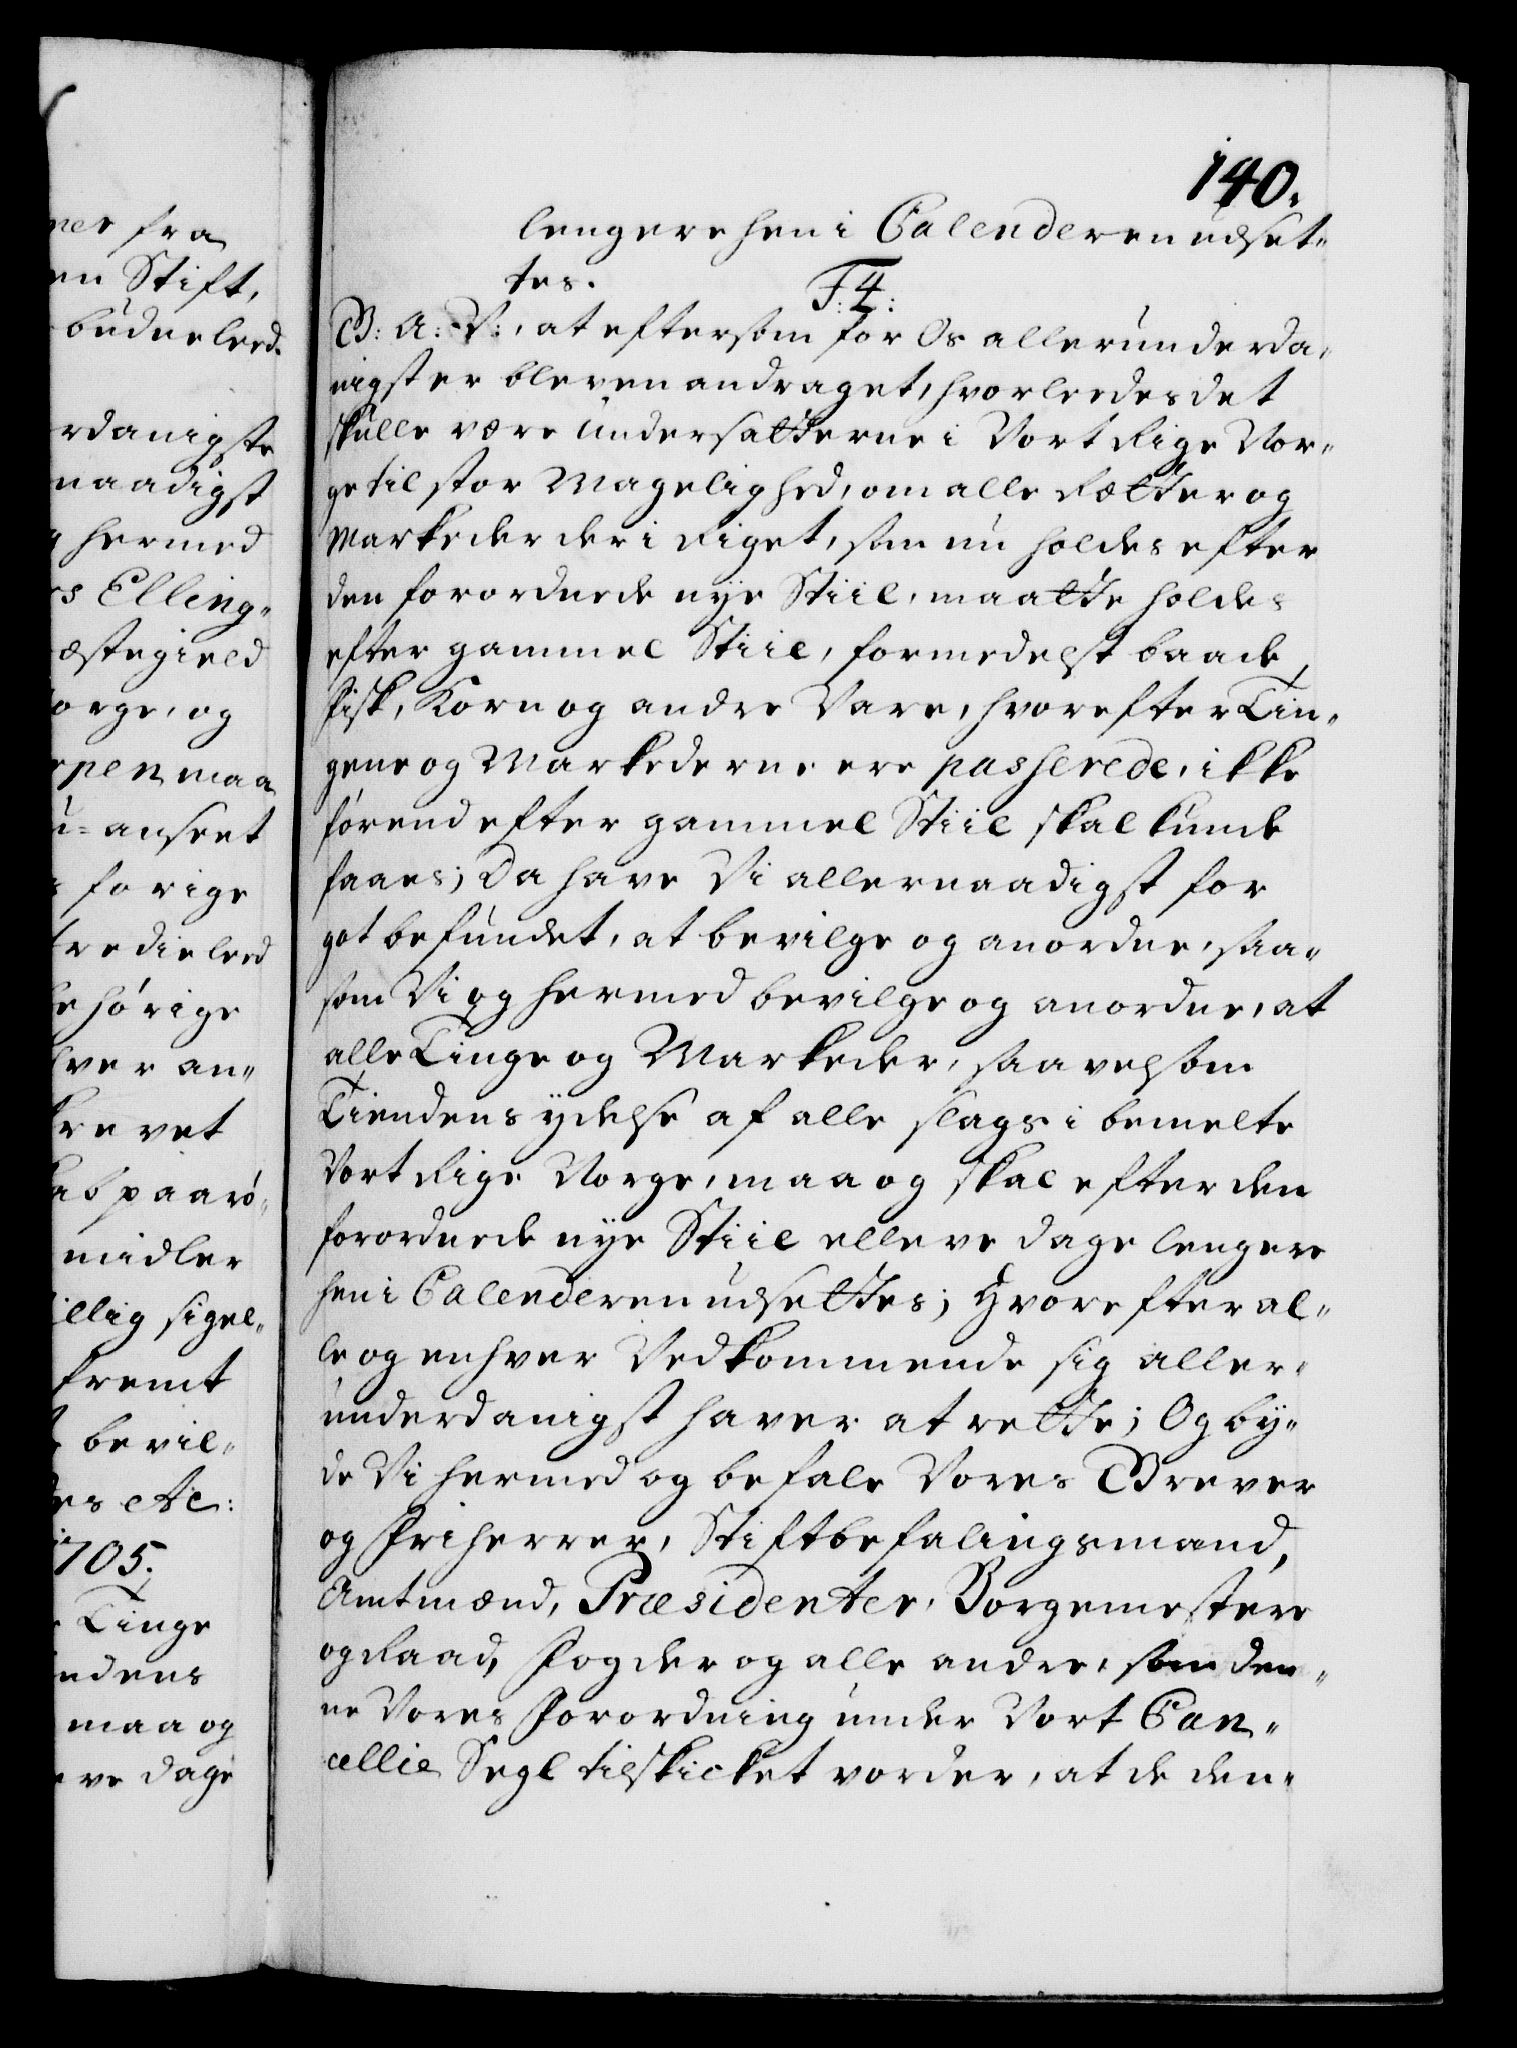 ner fra
en Stift,
budne leed.
rdanigste
naadigst
hermed
rs Elling"
æstegield
orge, og
rpen maa
u=anseet
forige
tredie leed
ehörige
lver an"
krevet
ab paarö"
midler
illig sigel"
fremt
bevil"
es etc:
1705.
Tinge
endens
maa og
eve dage
140.
lengere hen i Calenderen udset"
tes.
F: 4:
G: A: V:, at eftersom for Os allerunderda"
nigst er bleven andraget, hvorleedes det
skulle være Undersatterne i Vort Rige Nor"
ge til stor Magelighed, om alle Rætter og
Markeder der i Riget, som nu holdes efter
den forordnede nye Stiil, maatte holdes
efter gammel Stiil, formedelst baade
Fisk, Korn og andre Vare, hvorefter Tin"
gene og Markederne ere passerede, ikke
förend efter gammel Stiil skal kunde
faaes; Da have Vi allernaadigst for
got befundet, at bevilge og anordne, saa"
som Vi og hermed bevilge og anordne, at
alle Tinge og Markeder, saavelsom
Tiendens ydelse af alle slags i bemelte
Vort Rige Norge, maa og skal efter den
forordnede nye Stiil elleve dage lengere
hen i Calenderen udsettes; Hvorefter al"
le og enhver Vedkommende sig aller"
underdanigst haver at rette; Og by"
de Vi hermed og befale Vores Grever
og Friherrer, Stiftbefalingsmand,
Amtmænd, Præsidenter, Borgemestere
og Raad, Fogder og alle andre, som den"
ne Vores Forordning under Vort Can"
cellie Segl tilskicket vorder, at de den"